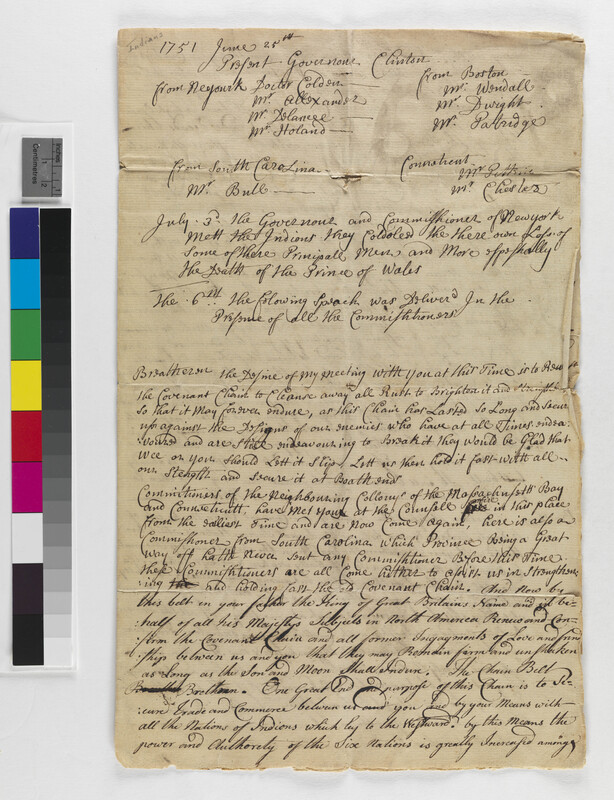 Indians
1751 June 25th
Present Governour Clinton
from Neyourk Docter Colden
Mr. Allexander
Mr. Delancee
Mr. Holand
from Boston
Mr. Wendall
Mr. Dwight
Mr. Patridge
from South Carolina
Mr. Bull
Conniticut
Mr.
Mr. Chester
July 3d. the Governour and Commissioner of Newyork
Mett the Indians they Condoled the there own Loss of
Some of there Principall Men and More esspeshally
the Death of the Prince of Wales
the 6th the folowing Speach was Deliver'd In the
Presence of all the Commistioners
Breatheren the Desine of my Meeting with You at this Time is to Renew
the Covenant Chain to Cleanse away all Rust to Brighten it and
So that it May forever endure, as this Chain has Lasted so Long and Secur
us against the Designs of our enemies who have at all Times endea
voured and are Still endeavouring to Break it they would be Glad that
Wee or you Should Lett it Slip Lett us then hold it fast with all
our Strenght and Secure it at Boath ends
Commitioners of the Neighbouring Collonys of the Massachusetts Bay
and Connecticutt, have Met you at the Counsell fire in this place
from the earliest Time and are now Come again, here is also a
Commissioner from South Carolina which Province Being a Great
way off hath never Sent any Commistioner Before this Time.
these Commistioners are all Come hither to assist us in Strengthen
ning and holding fast the Sd Covenant Chain. And now by
this belt in your father the King of Great Britains Name and be-
half of all his Majestys Subjects in North America Renew and Con-
firm the Covenant Chain and all former Ingagements of Love and frind
ship between us and you that they may Remain firm and unshaken
as Long as the Son and Moon Shall Indure. The Chain Belt
Brothren. One Great End and purpose of this Chain is to Se-
cure Trade and Commerce betwen us and you and by your Means with
all the Nations of Indians which ley to the Westward. by this Means the
power and Authorety of the Six Nations is greatly Increased among